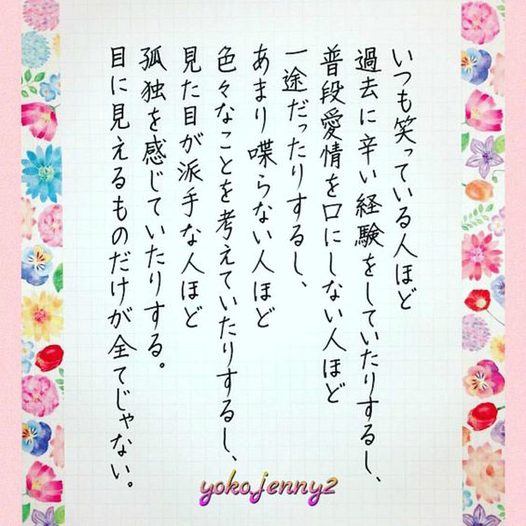 いつも笑っている人ほど
過去に辛い経験をしていたりするし、
普段愛情を口にしない人ほど
一途だったりするし、
あまり喋らない人ほど
色々なことを考えていたりするし、
見た目が派手な人ほど
孤独を感じていたりする。
目に見えるものだけが全てじゃない。
yokojenny2